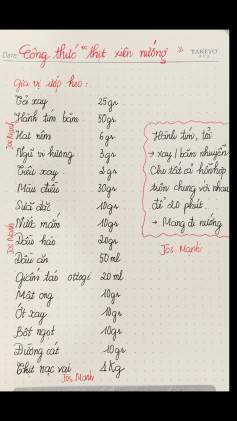 Date
Công thức thịt xiên nướng
TAKEYO
Gia vị ướp heo:
Tỏi xay 25gr
Hành tím băm 50gr
Hạt nêm 6gr
Ngũ vị hương 3gr
Tiêu xay 2gr
Màu điều 30gr
Sữa đặc 10gr
Nước mắm 10gr
Dầu hào 20gr
Dầu ăn 50ml
Giấm táo ottogi 20ml
Mật ong 10gr
Ớt xay 10gr
Bột ngọt 10gr
Đường cát 10gr
Thịt nạc vai 1Kg
Hành tím, tỏi
→ xay / băm nhuyễn
Cho tất cả hỗn hợp
trộn chung với nhau
để 20 phút.
→ Mang đi nướng
Jos Manh
Jos Manh
Jos Manh
Jos Manh